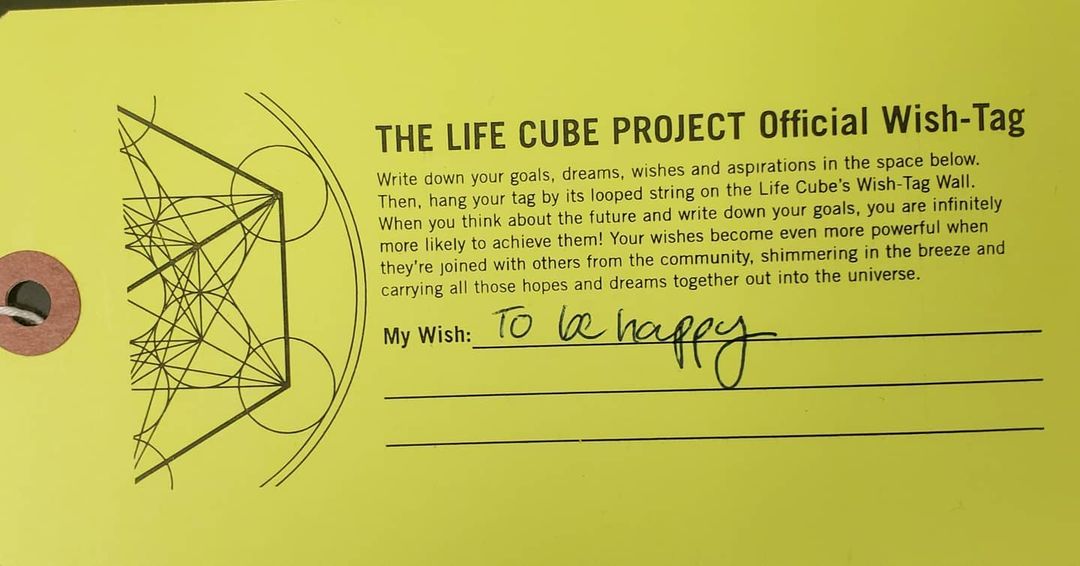 THE LIFE CUBE PROJECT Official Wish-Tag
Write down your goals, dreams, wishes and aspirations in the space below.
Then, hang your tag by its looped string on the Life Cube's Wish-Tag Wall.
When you think about the future and write down your goals, you are infinitely
more likely to achieve them! Your wishes become even more powerful when
they're joined with others from the community, shimmering in the breeze and
carrying all those hopes and dreams together out into the universe.
My Wish: To be happy